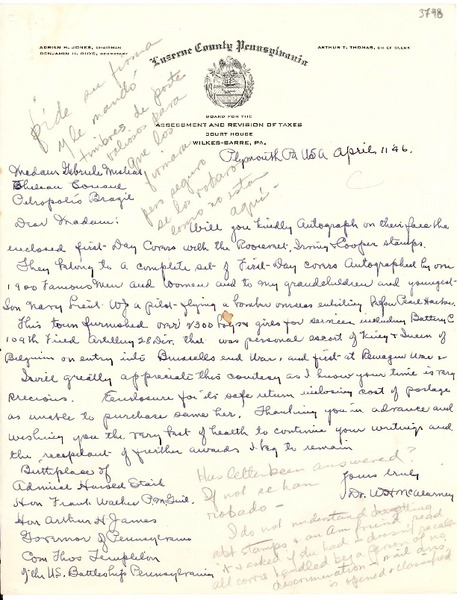 3798
ADRIEN H. JONES, CHAIRMAN
Luzerne County Pennsylvania
ARTHUR T. THOMAS, CHIEF CLERK
BOARD FOR THE
ASSESSMENT AND REVISION OF TAXES
COURT HOUSE
WILKES-BARRE, PA.
Pide su firma
y le mandó
timbres de porte
valiosos para
que los
firmara
pero seguro
se los robaron
como no estan
aquí -
Plymouth Pa USA April 11 46.
Madam Gabriela Mistral
Chilean Consul
Petropolis Brazil
Dear Madam:
Will you kindly Autograph on their face the
enclosed first-Day Covers with the Roosevelt, Irving & Cooper stamps.
They belong to a complete set of First-Day covers Autographed by over
1900 Famous Men and Women and to my grandchildren and youngest
Son Navy Lieut. a pilot-flying a bomber overseas enlisting before Pearl Harbor.
This town furnished over 2300 boys & girls for service including Battery C
109th Field Artillery 28 Div. that was personal escort of King & Queen of
Belgium on entry into Brussels end War 1 and first at Remagen War 2
I will greatly appreciate this courtesy as I know your time is very
precious. Enclosure for its safe return inclosing cost of postage
as unable to purchase same here. Thanking you in advance and
wishing you the very best of health to continue your writings and
the recipient of further awards I beg to remain
Birthplace of
Admiral Harold Stark
Hon Frank Walker P.M. Genl.
Hon Arthur H James
Governor of Pennsylvania
Com Thos Templeton
of the US. Battleship Pennsylvania
Yours truly
Dr. W
Has letter been answered?
If not se han
robado -
I do not understand
abt stamps & an Am. friend read
it & asked if she had - doesn't
all covers handled by a person of no
discrimination - mail
is opened & classified